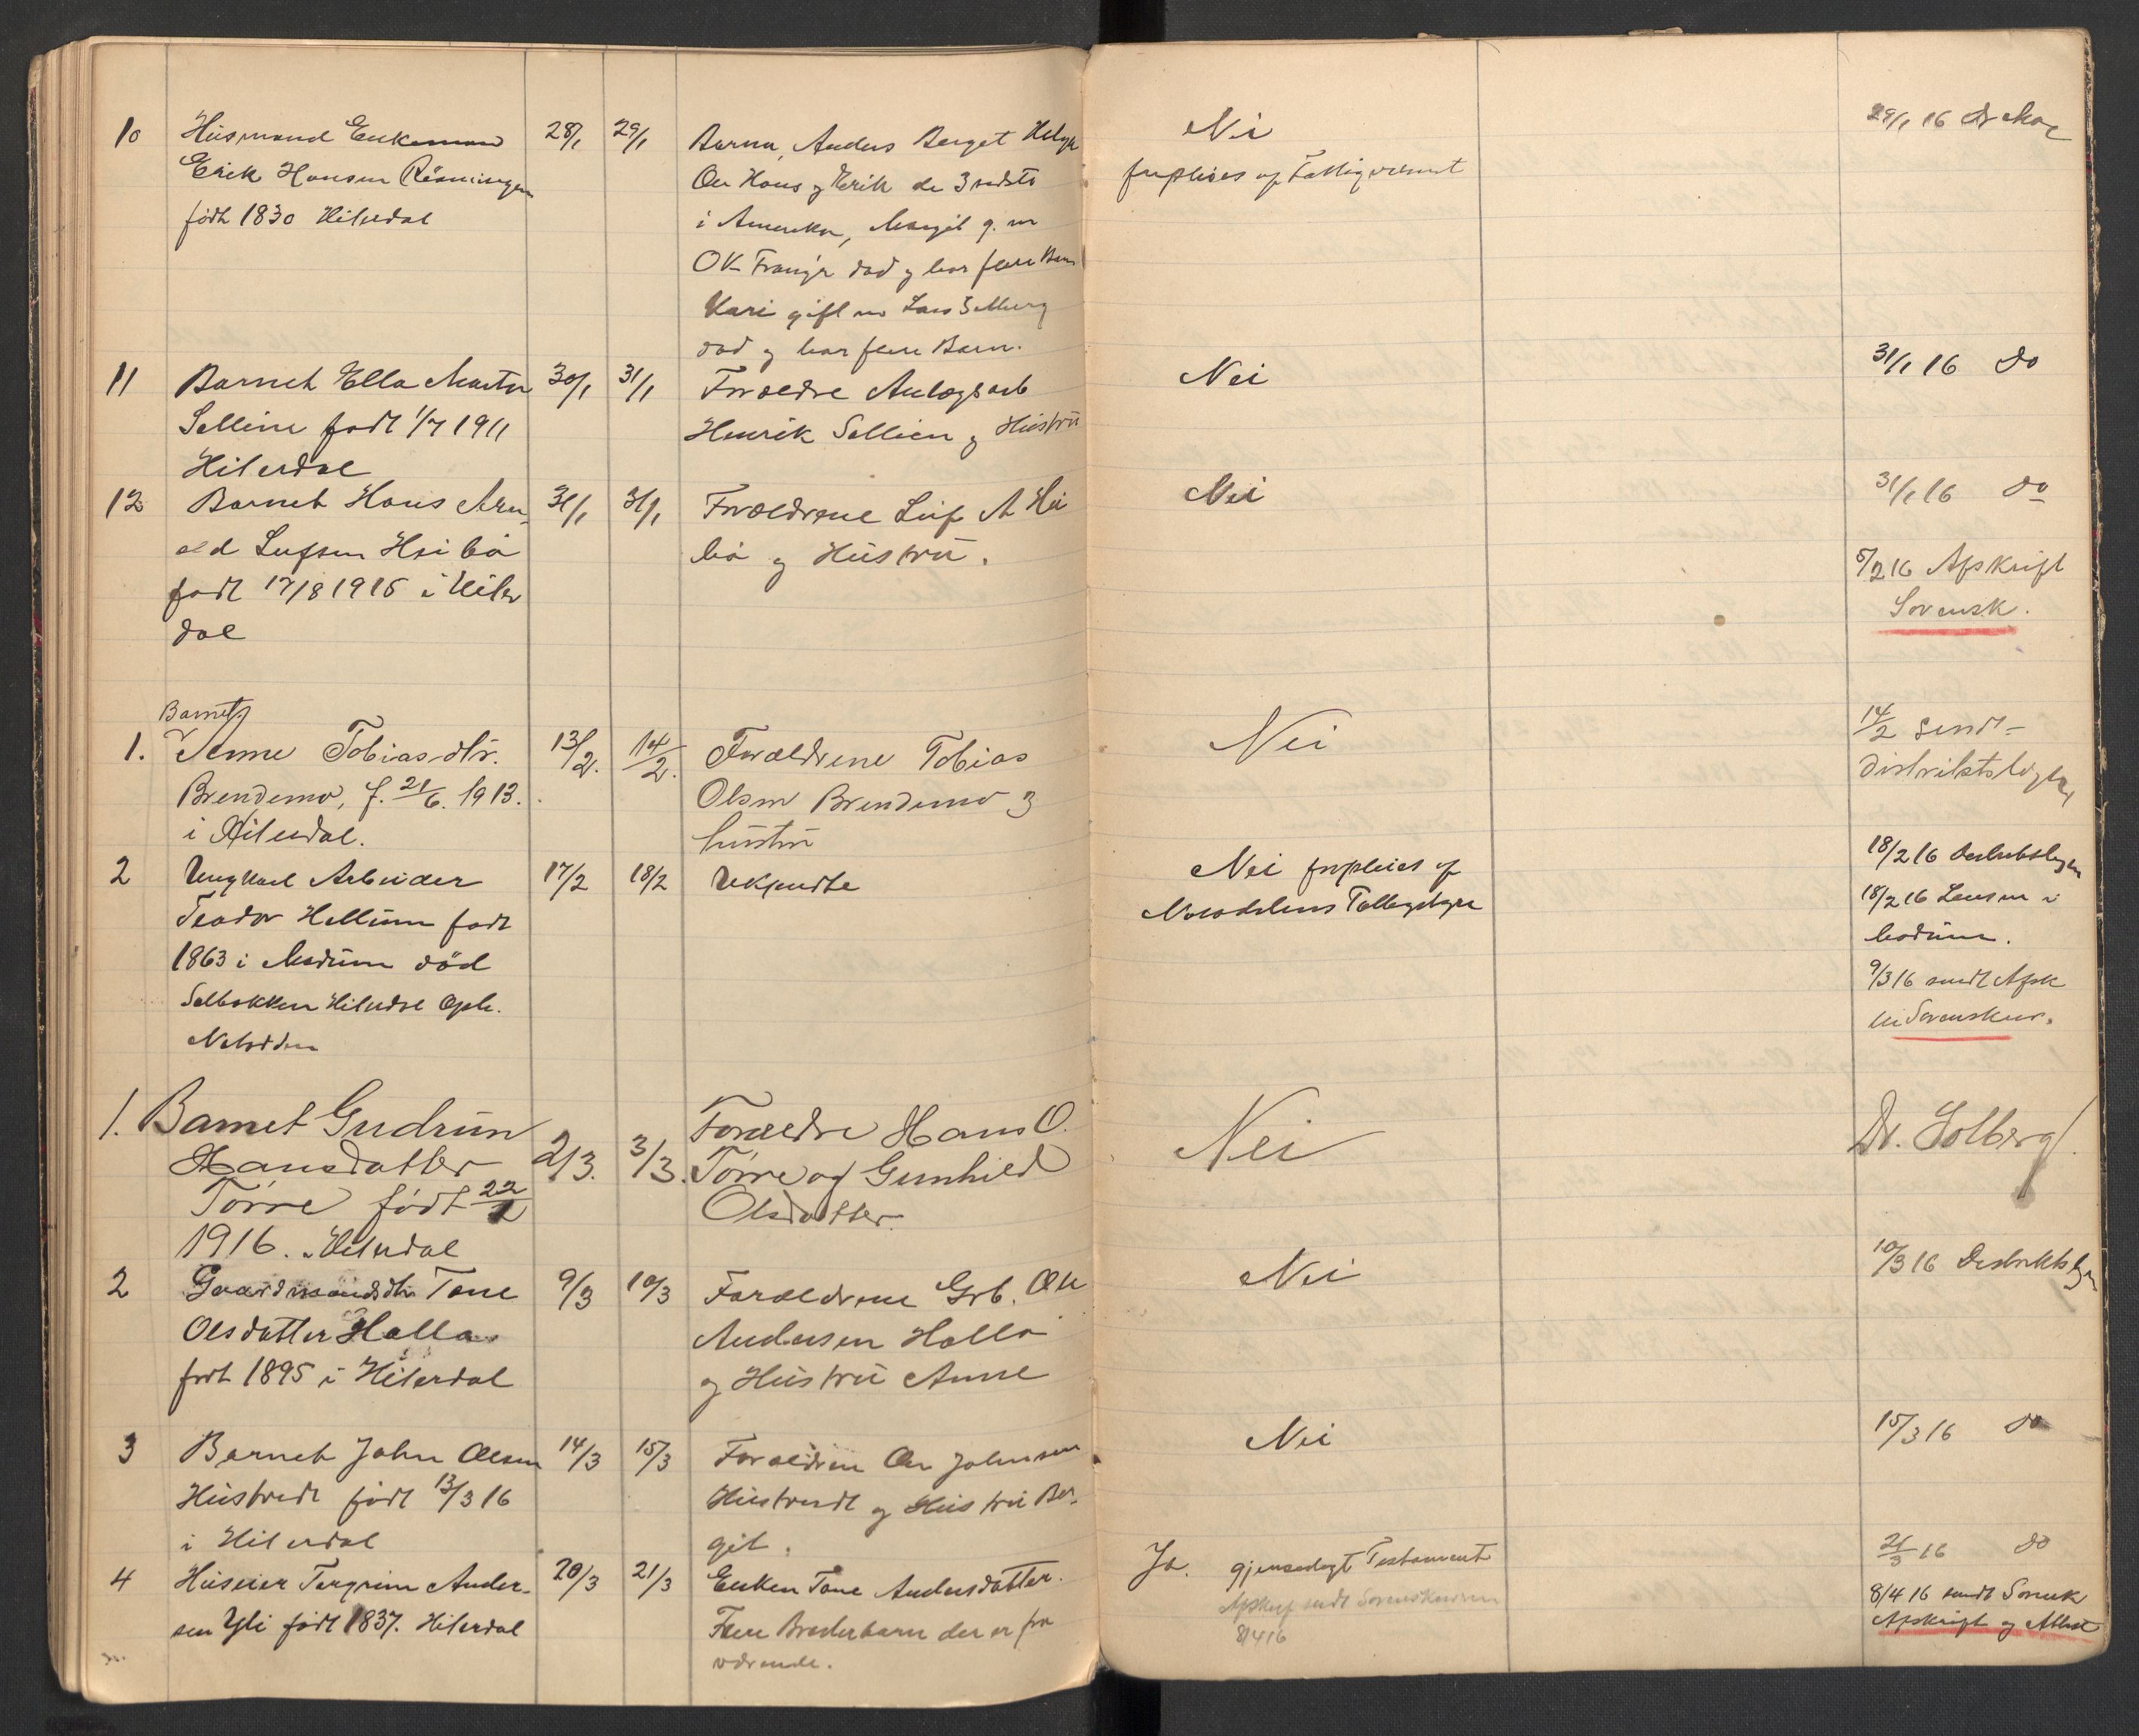 10 Husmand Enkemand 28/1 29/1 Barn, Anders Berget Helge Nei 29/1 16 Dr Moe
Erik Hansen Rismingen Ole Hans og Erik de 3 sidste forpleies af Fattigvæsenet
født 1830 Hiterdal i Amerika, Margit g. m
OK død og har flere Barn
Kari gift m Lars Solberg
død og har flere Barn.
11 Barnet Ella Marta 30/1 31/1 Forældre Anlægsarb Nei 31/1 16 do
Selline født 1/7 1911 Henrik Sellien og Hustru
Hiterdal
12 Barnet Hans Arn- 31/1 31/1 Forældrene Leif A Hei Nei 31/1 16 do
old Leifsen Heibø bø og Hustru. 5/2 16 Afskrift
født 17/8 1915 i Hiter Sorensk.
dal
Barnet
1. Anne Tobiasdtr. 13/2. 14/2. Forældrene Tobias Nei 14/2 sendt
Brendemo, f. 21/6. 1913. Olsen Brendemo & distriktslægen
i Hiterdal. hustru
2 Ungkarl Arbeider 17/2 18/2 Ukjendte Nei forpleies af 18/2 16 Distriktslægen
Teodor Hellum født Notoddens Fattigstyre 18/2 16 Lensm i
1863 i Modum død Modum.
Selbakken Hiterdal Oph. 9/3 16 sendt Afsk
Notodden til Sorenskur.
1. Barnet Gudrun 2/3. 3/3. Forældre Hans O. Nei Dr. Solberg.
Hansdatter Tørre og Gunhild
Tørre født 22/2 Olsdatter
1916. Hiterdal
2 Gaardmandsdtr Tone 9/3 10/3 Forældrene Grb. Ole Nei 10/3 16 Distriktslægen
Olsdatter Holla Andersen Holla
født 1895 i Hiterdal og Hustru Anne
3 Barnet John Olsen 14/3 15/3 Forældrene Ole Johnsen Nei 15/3 16 do
Hustvedt født 13/3 16 Hustvedt og Hustru Ber-
i Hiterdal git.
4 Huseier Torgrim Ander- 20/3 21/3 Enken Tone Andersdatter. Ja. gjensidigt Testament 21/3 16 do
sen Yli født 1837. Hiterdal Flere Broderbarn der er fra Afskrift sendt Sorenskriveren 8/4 16 sendt Sorensk
værende. 8/4 16 Afskrift og Attest